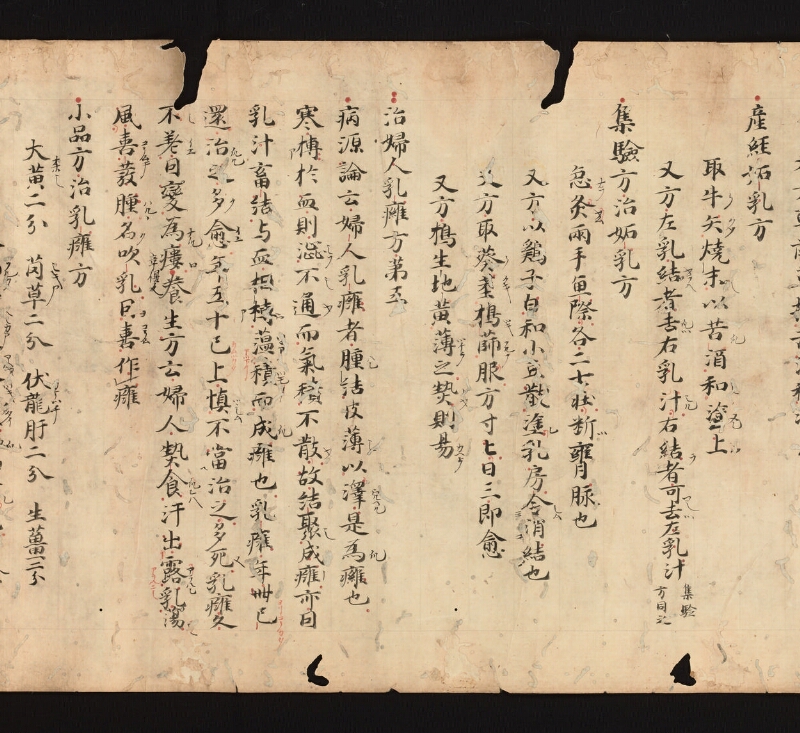 産經妬乳方
取牛矢燒末以苦酒和塗上
又方左乳結者去右乳汁右結者可去左乳汁 集驗方同之
集驗方治妬乳方
急灸兩手魚際各二七壯斷癰脉也
又方以鷄子白和小豆散塗乳房令消結也
又方取葵莖搗篩服方寸匕日三即愈
又方搗生地黄薄之熱則易
治婦人乳癰方第
病源論云婦人乳癰者腫結皮薄以澤是為癰也
寒搏於血則澁不通而氣積不散故結聚成癰亦曰
乳汁畜結与血相搏蘊積而成癰也乳癰年卌已
還治之多愈年五十已上慎不當治之多死乳癰久
不差因變為瘻養生方云婦人熱食汗出露乳蕩
風喜發腫名吹乳因喜作癰
小品方治乳癰方
大黄二分 茵草二分 伏龍肝二分 生薑二分